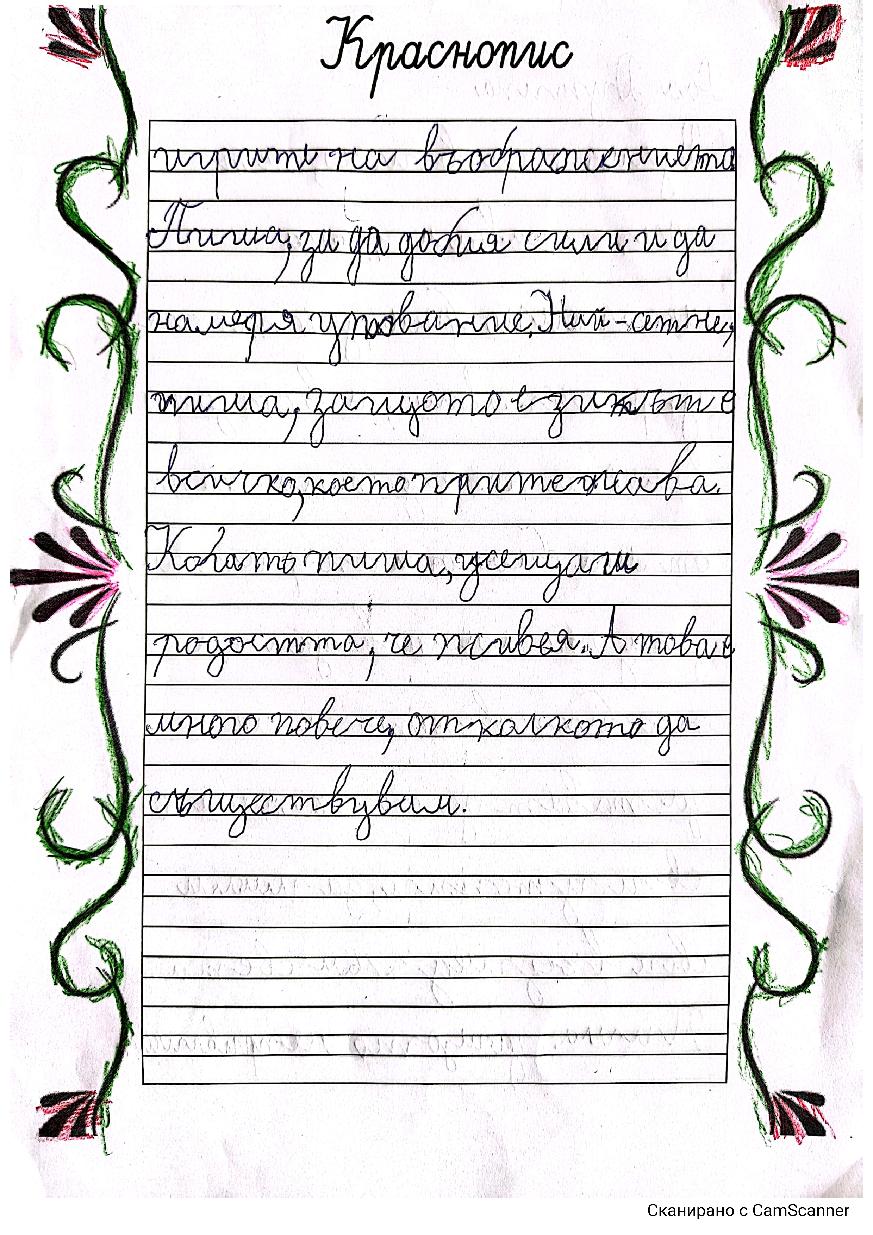 Краснопис
игрите на въображението
Пиша, за да добия сили и да
намеря упование. Най-сетне,
пиша, защото езикът е
всичко, което притежава.
Когато пиша, усещам
радостта, че живея. А това е
много повече, отколкото да
съществувам.
Сканирано с CamScanner